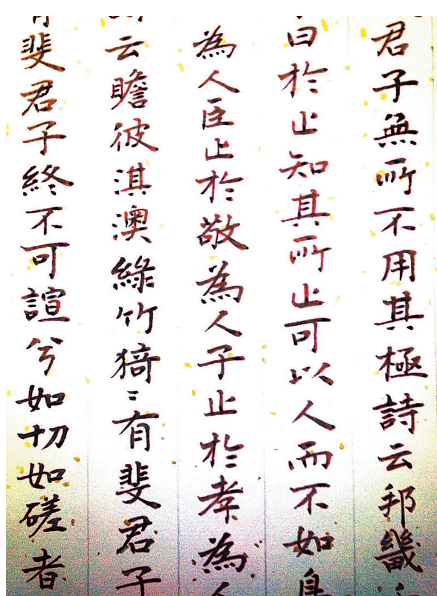 君子無所不用其極詩云邦畿
曰於止知其所止可以人而不如鳥
為人臣止於敬為人子止於孝為人
云瞻彼淇澳綠竹猗〻有斐君子
有斐君子終不可諠兮如切如磋者